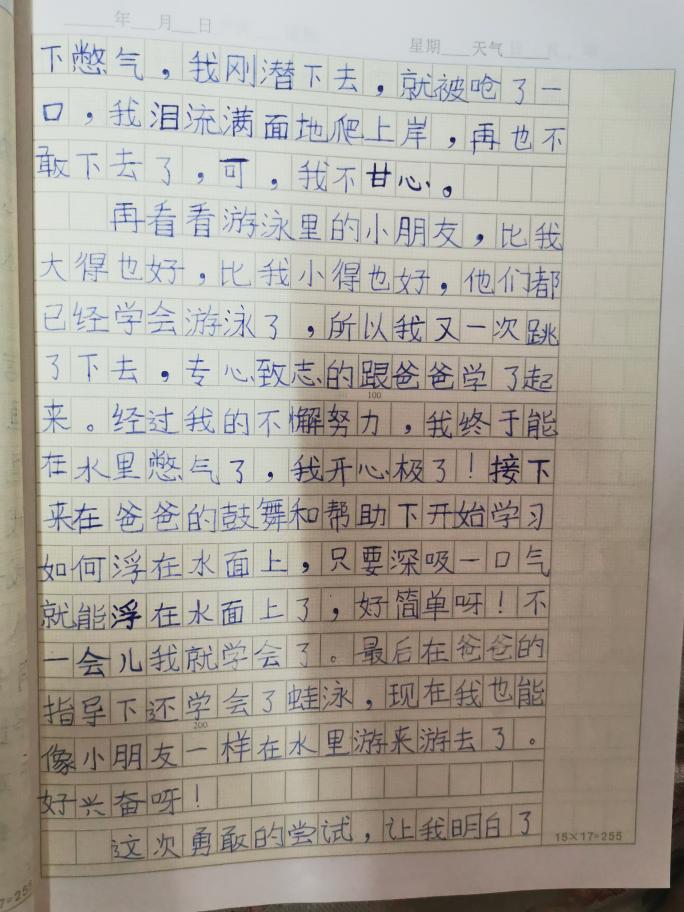 年 月 日
星期 天气
下憋气，我刚潜下去，就被呛了一
口，我泪流满面地爬上岸，再也不
敢下去了，可，我不甘心。
再看看游泳里的小朋友，比我
大得也好，比我小得也好，他们都
已经学会游泳了，所以我又一次跳
了下去，专心致志的跟爸爸学了起
100
来。经过我的不懈努力，我终于能
在水里憋气了，我开心极了！接下
来在爸爸的鼓舞和帮助下开始学习
如何浮在水面上，只要深吸一口气
就能浮在水面上了，好简单呀！不
一会儿我就学会了。最后在爸爸的
指导下还学会了蛙泳，现在我也能
200
像小朋友一样在水里游来游去了。
好兴奋呀！
这次勇敢的尝试，让我明白了
15×17=255